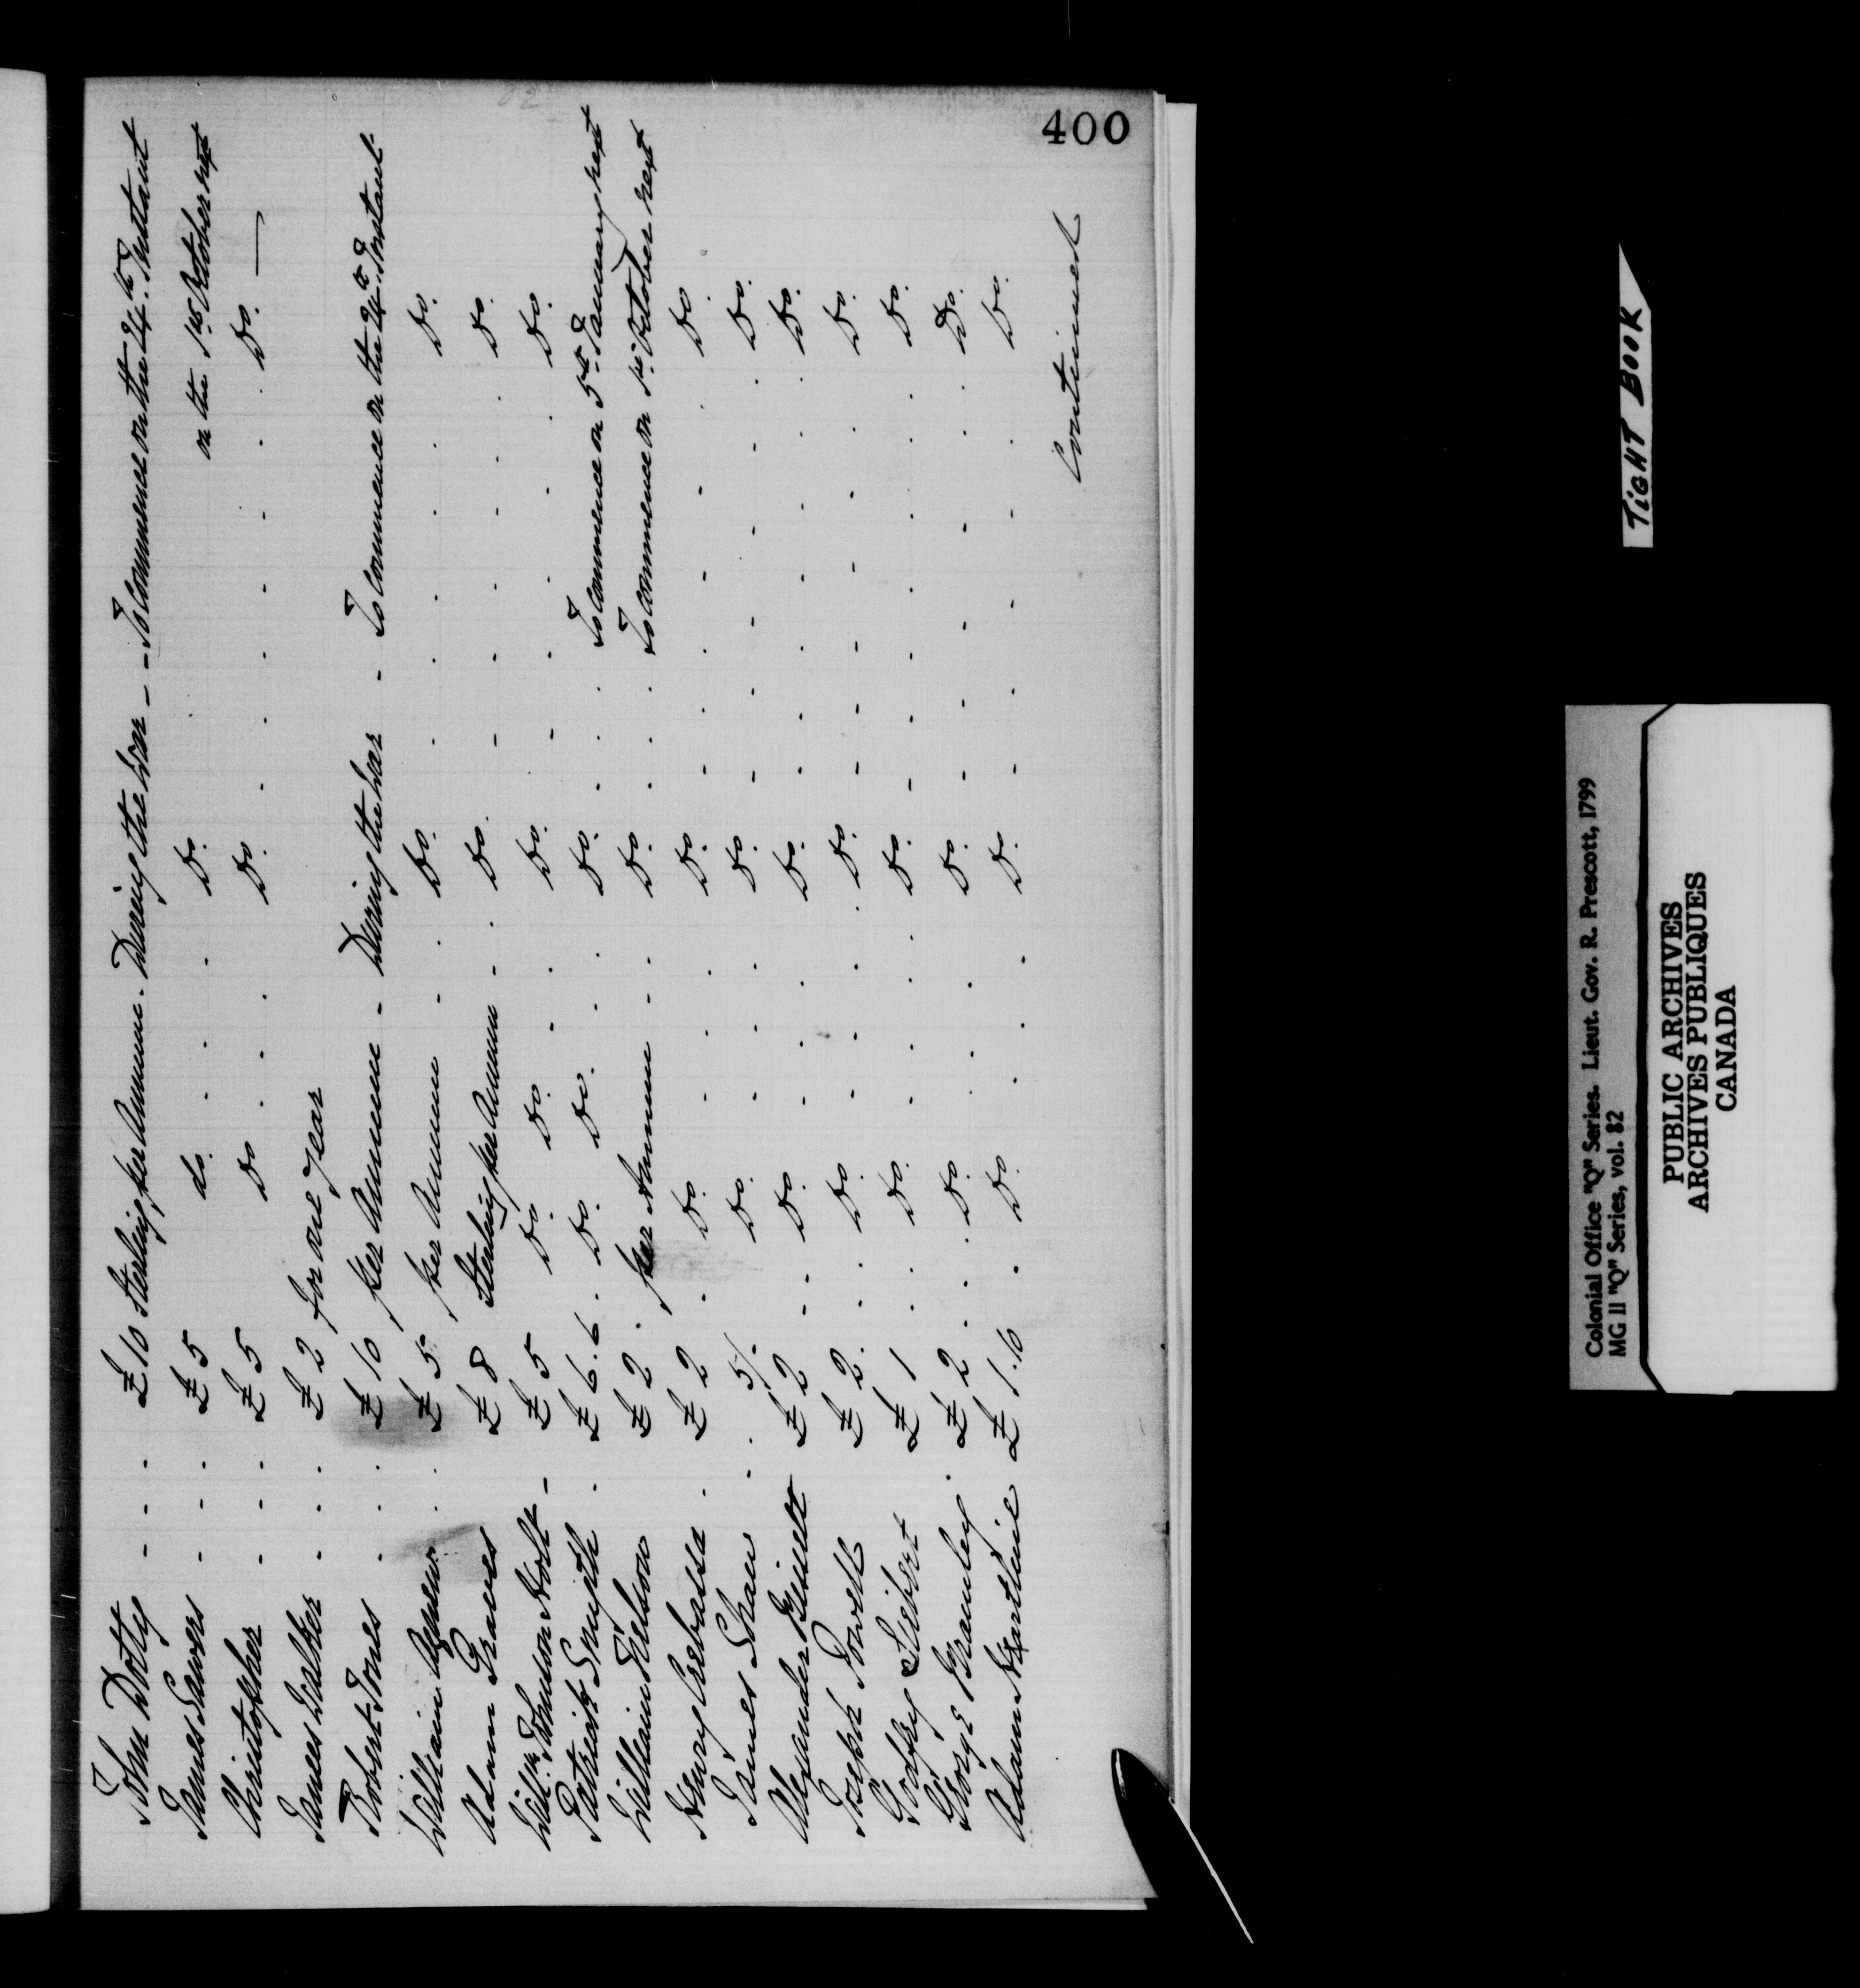 400
John Doty - - - £10 Sterling per Annum - During the War - To commence on the 24th Instant
James Sawers - - - £5 do. - - - Do. on the 1st October next
Christopher - - - £5 Do - - - Do. - - - - - - Do. —
James Walker - - - £2 for one year
Robert Jones - - - £10 per Annum - During the War - To commence on the 24th Instant
William - - £5 per Annum - - Do. - - - - - Do.
Adam Graves £8 Sterling per Annum - - Do. - - - - - Do.
Willm Johnson Holt - £5 Do. Do. - - Do. - - - - - Do.
Patrick Smyth - £6.6. Do. Do. - - Do. - - - To commence on 5th January next
William Nelson £2 . per Annum - - Do. - - To commence on 1st October next
Henry Crebassa . £2 . Do. - - - Do. - - - - - - Do.
James Shaw - . 5/. Do. - - - Do. - - - - - - Do.
Alexander £2 - - Do. - - - Do. - - - - - - Do.
Joseph Powell £2 . . . Do. - - - Do. - - - - - - Do.
Godfry Seibert £1 . . Do. - - - Do. - - - - - - Do.
George Bramley . £2 . . . Do. - - - Do. - - - - - - Do.
Adam £1.10 . Do. - - - Do. - - - - - Do.
Continued
TIGHT BOOK
Colonial Office "Q" Series. Lieut. Gov. R. Prescott, 1799
MG 11 "Q" Series, vol. 82
PUBLIC ARCHIVES
ARCHIVES PUBLIQUES
CANADA